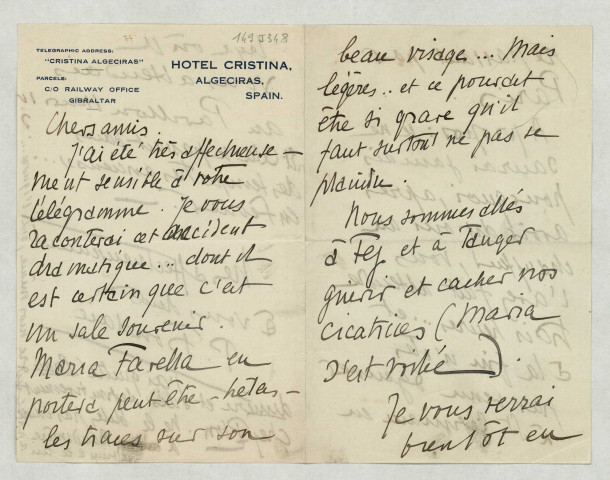 149 J 348
TELEGRAPHIC ADDRESS:
"CRISTINA ALGECIRAS"
PARCELS:
C/O RAILWAY OFFICE
GIBRALTAR
HOTEL CRISTINA,
ALGECIRAS,
SPAIN.
Chers amis.
J'ai été très affectueuse-
ment sensible à votre
télégramme. Je vous
raconterai cet accident
dramatique... dont il
est certain que c'est
un sale souvenir.
Maria Farella en
portera peut être - hélas -
les traces sur son
beau visage... Mais
légères.. et ce pourrait
être si grave qu'il
faut surtout ne pas se
plaindre.
Nous sommes allés
à Fez et à Tanger
guérir et cacher nos
cicatrices (Maria
s'est voilée).
Je vous verrai
bientôt en